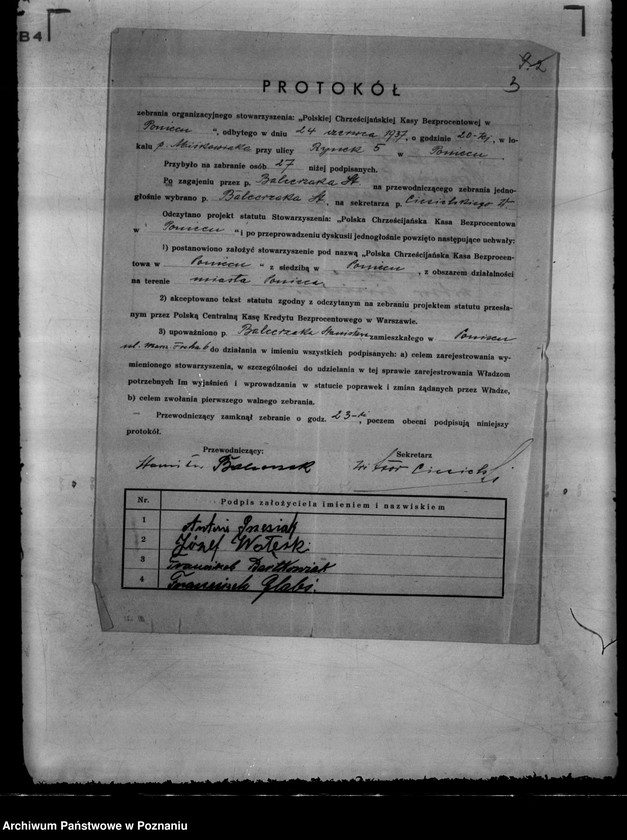 B4
3
PROTOKÓŁ
zebrania organizacyjnego stowarzyszenia: „Polskiej Chrześcijańskiej Kasy Bezprocentowej w
Poniecu “, odbytego w dniu 24 czerwca 1937, o godzinie 20-tej, w lo-
kalu p. przy ulicy Rynek 5 w Poniecu.
Przybyło na zabranie osób 27 niżej podpisanych.
Po zagajeniu przez p. Balcerzaka St. na przewodniczącego zebrania jedno-
głośnie wybrano p. Balcerzaka St., na sekretarza p. W.
Odczytano projekt statutu Stowarzyszenia: „Polska Chrześcijańska Kasa Bezprocentowa
w Poniecu “ i po przeprowadzeniu dyskusji jednogłośnie powzięto następujące uchwały:
1) postanowiono założyć stowarzyszenie pod nazwą „Polska Chrześcijańska Kasa Bezprocen-
towa w Poniecu “ z siedzibą w Poniecu, z obszarem działalności
na terenie miasta Ponieca
2) akceptowano tekst statutu zgodny z odczytanym na zebraniu projektem statutu przesła-
nym przez Polską Centralną Kasę Kredytu Bezprocentowego w Warszawie.
3) upoważniono p. Balcerzaka Stanisława zamieszkałego w Poniecu
ul. do działania w imieniu wszystkich podpisanych: a) celem zarejestrowania wy-
mienionego stowarzyszenia, w szczególności do udzielania w tej sprawie zarejestrowania Władzom
potrzebnych Im wyjaśnień i wprowadzania w statucie poprawek i zmian żądanych przez Władze,
b) celem zwołania pierwszego walnego zebrania.
Przewodniczący zamknął zebranie o godz. 23-ej, poczem obecni podpisują niniejszy
protokół.
Przewodniczący: Sekretarz
Balcerzak Wiktor
Nr. Podpis założyciela imieniem i nazwiskiem
1 Antoni
2 Józef
3 Franciszek Bartkowiak
4 Franciszek
Archiwum Państwowe w Poznaniu